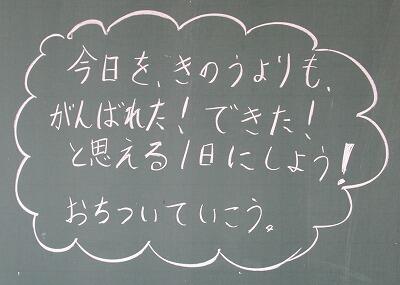 今日を、きのうよりも、
がんばれた！できた！
と思える1日にしよう！
おちついていこう。